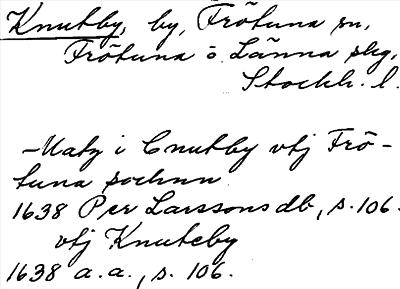 Knutby, by, Frötuna sn,
Frötuna o Länna skg,
Stockh. l.
—Matz i Cnutby vtj Frö-
tuna sochnn
1638 Per Larssons db, s. 106.
vtj Knuteby
1638 a.a., s. 106.